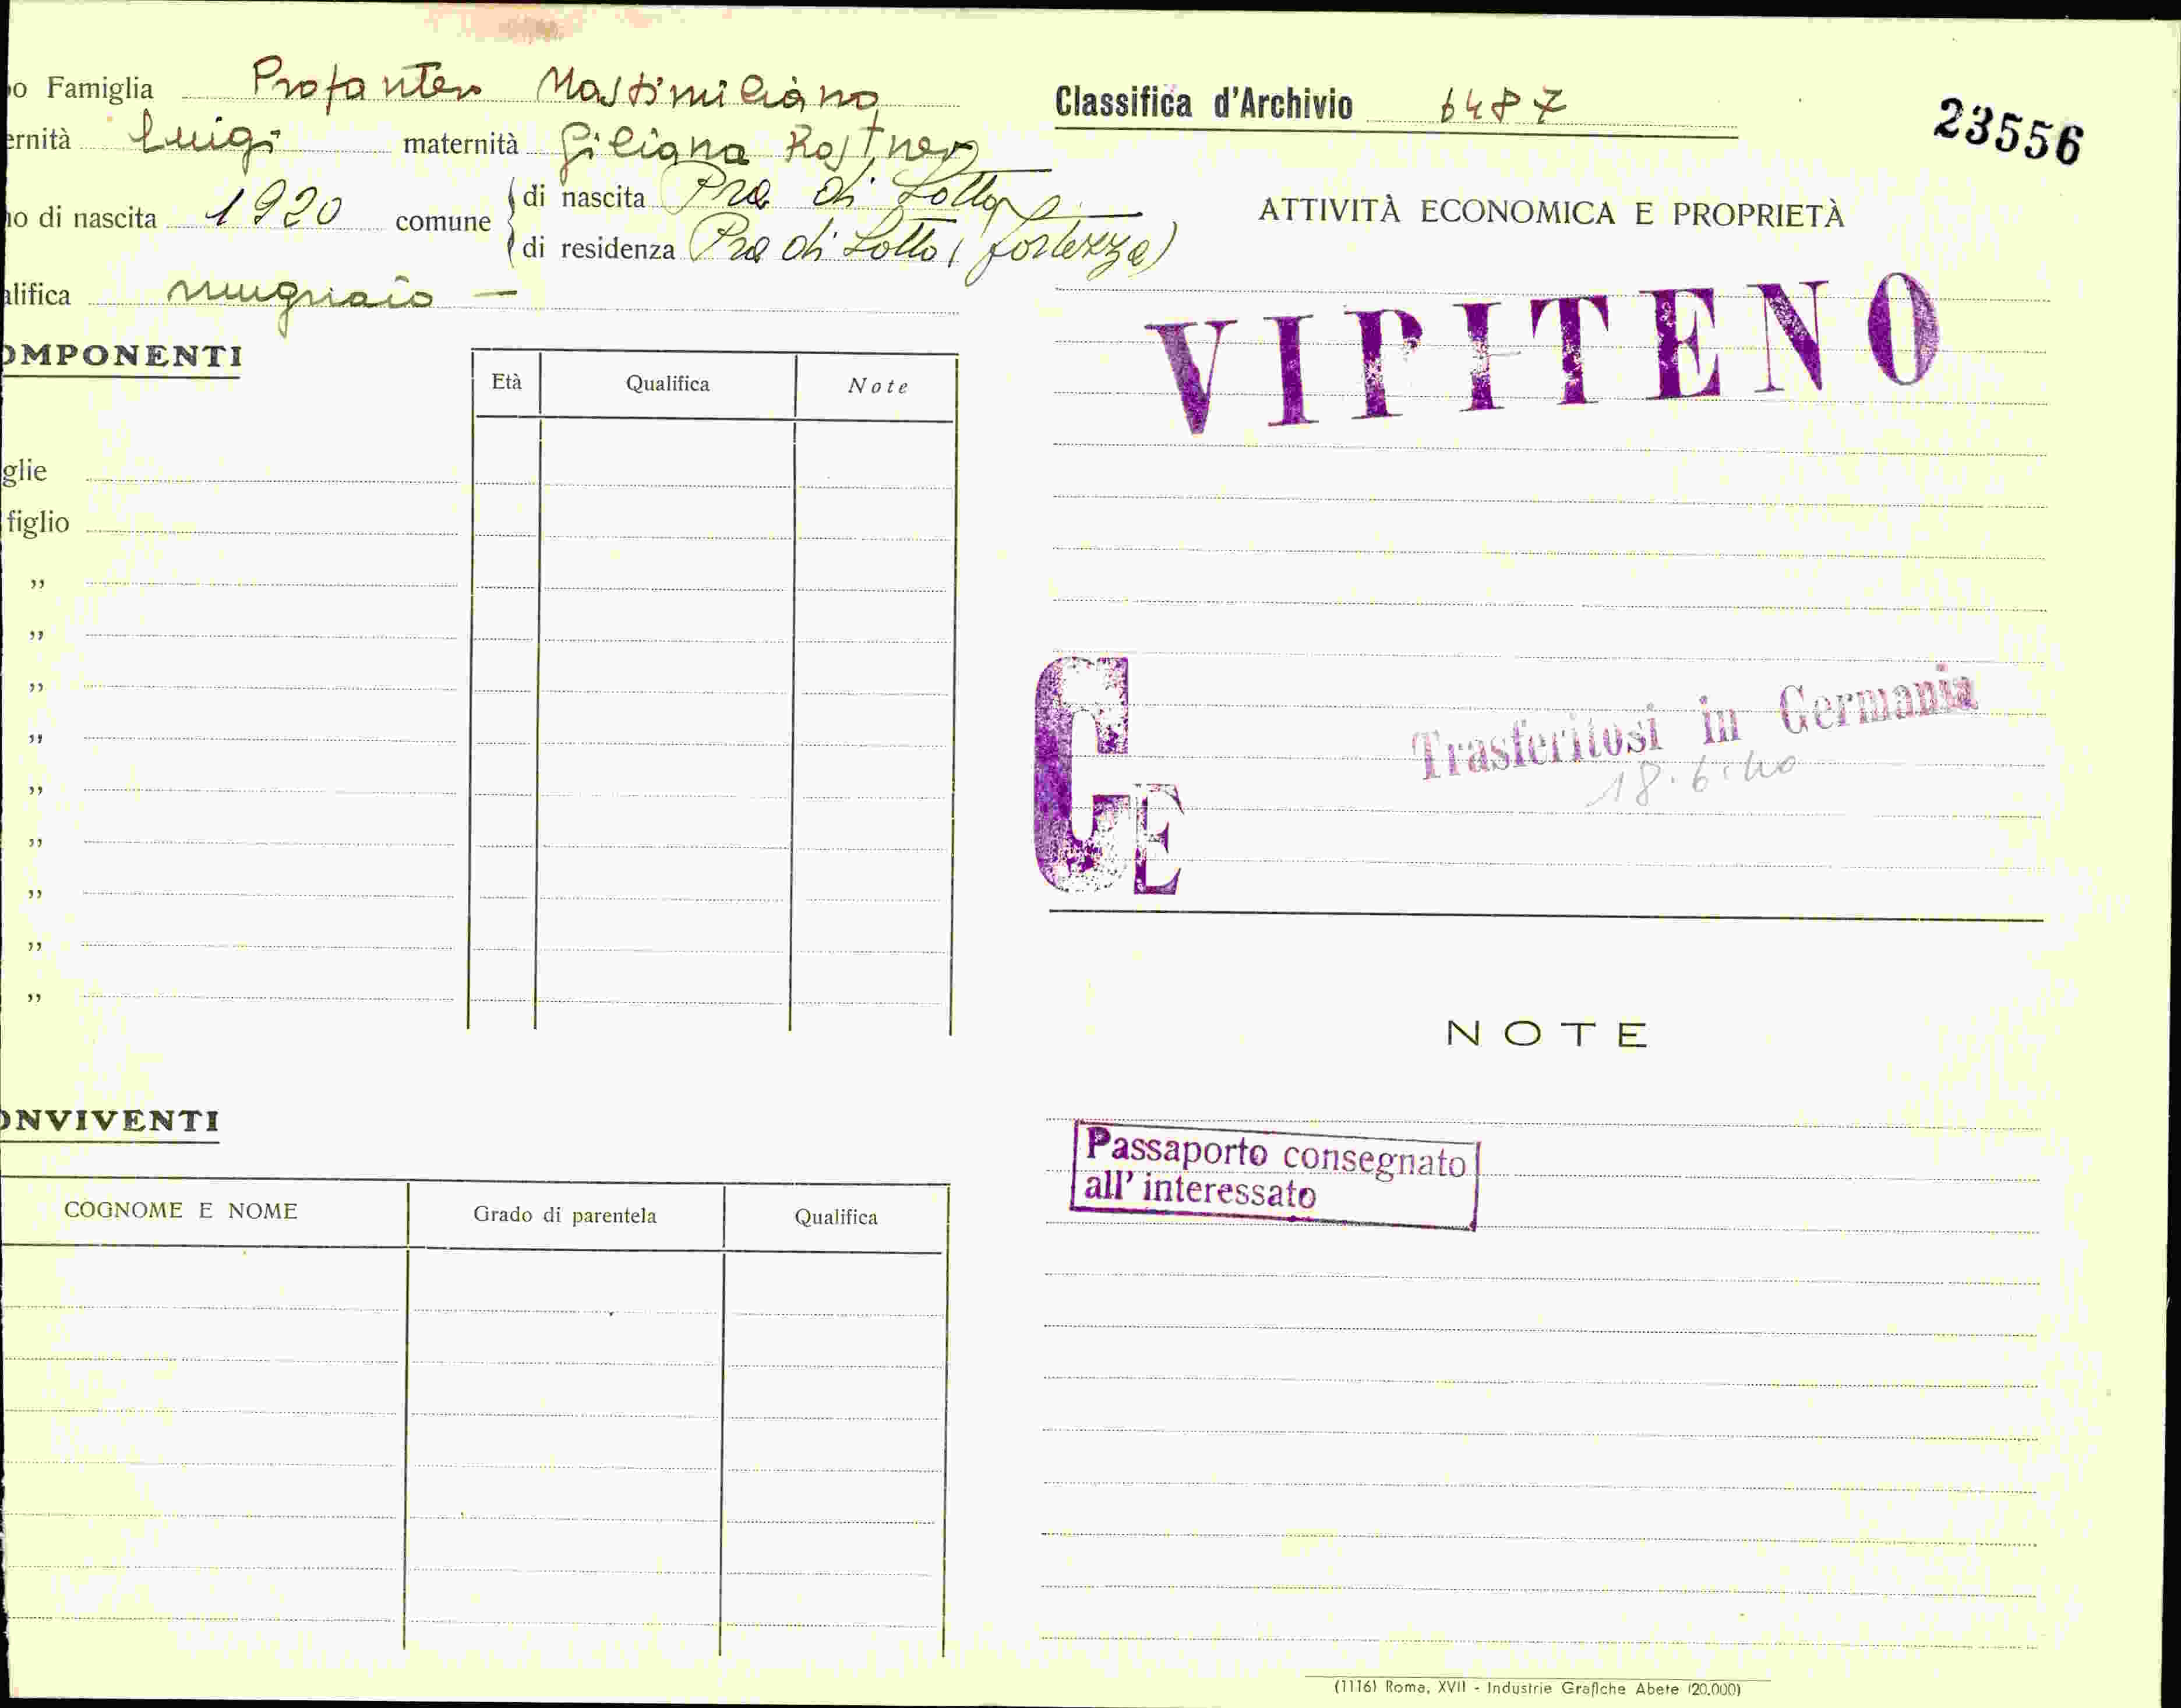 o Famiglia Profanter Massimiliano
ernità Luigi maternità Giliana Rostner
no di nascita 1920 comune di nascita Pra di Sotto
di residenza Pra di Sotto (fortezza)
alifica mugnaio —
OMPONENTI
Età Qualifica Note
glie
figlio
”
”
”
”
”
”
”
”
”
ONVIVENTI
COGNOME E NOME Grado di parentela Qualifica
Classifica d'Archivio 6487
23556
ATTIVITÀ ECONOMICA E PROPRIETÀ
VIPITENO
GE
Trasferitosi in Germania
18.6.40
NOTE
Passaporto consegnato
all' interessato
(1116) Roma, XVII - Industrie Grafiche Abete (20.000)